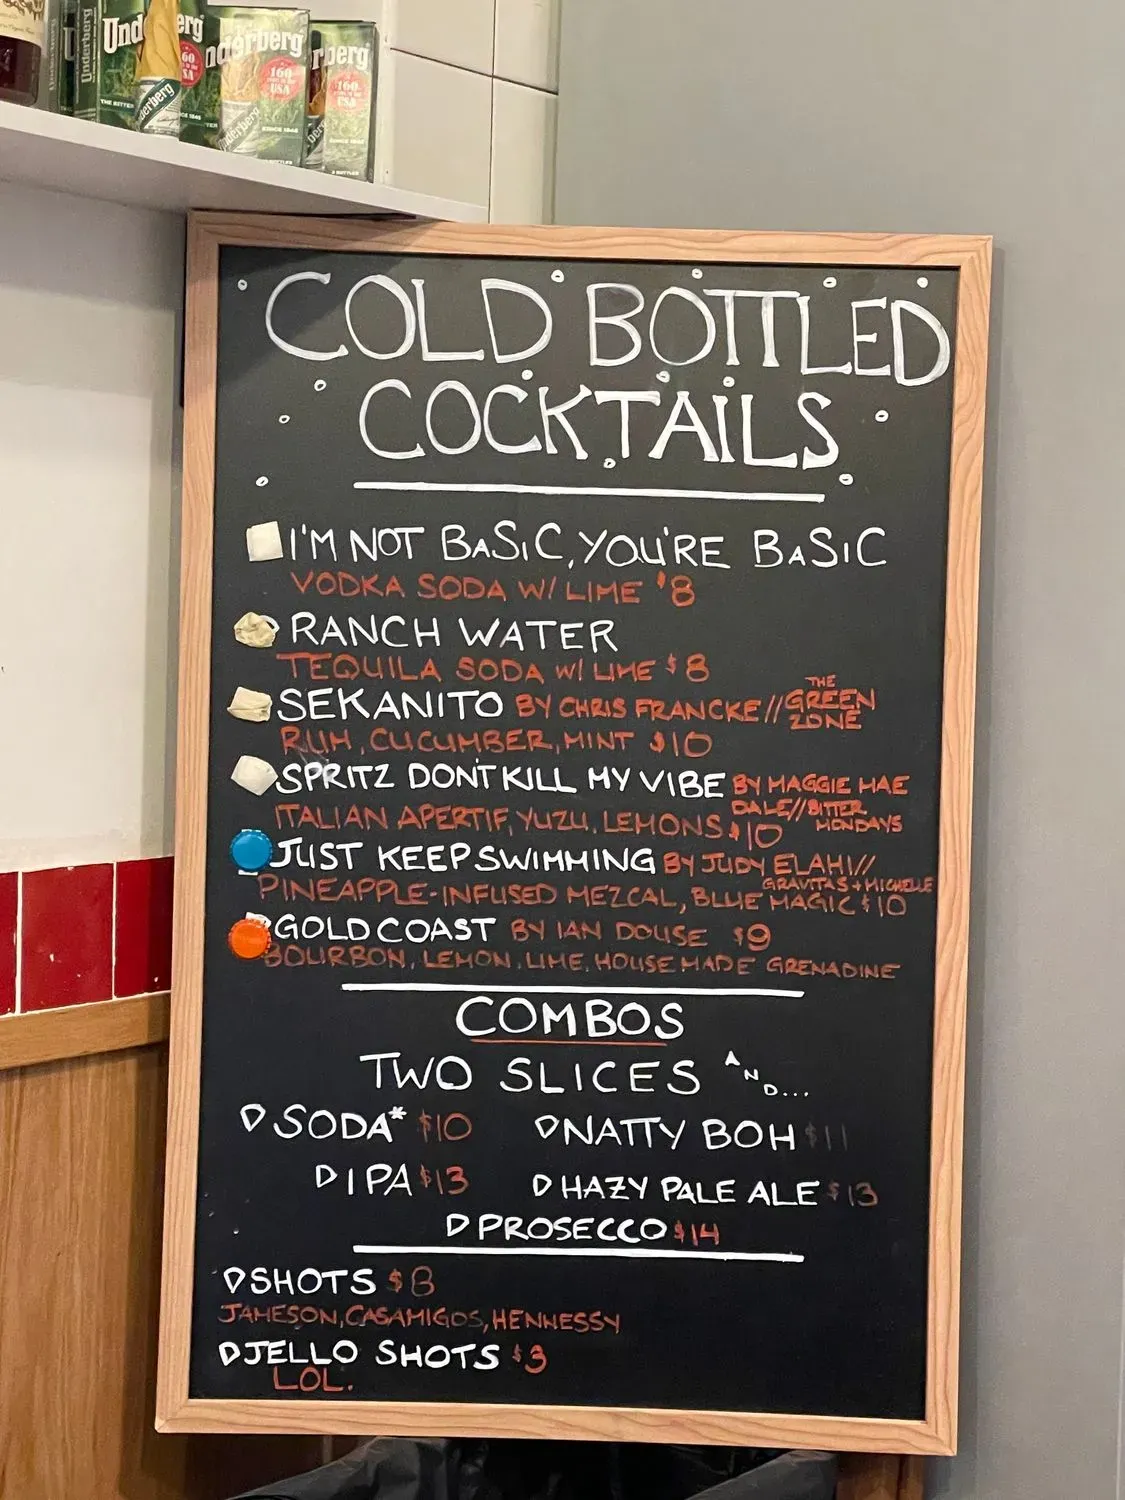 Underberg
160
USA
THE BITTER
Underberg
Underberg
160
USA
SINCE 1846
Underberg
rberg
160
USA
SINCE 1846
COLD BOTTLED
COCKTAILS
I'M NOT BASIC, YOU'RE BASIC
VODKA SODA W/ LIME $8
RANCH WATER
TEQUILA SODA W/ LIME $8
SEKANITO BY CHRIS FRANCKE // THE GREEN ZONE
RUM, CUCUMBER, MINT $10
SPRITZ DON'T KILL MY VIBE BY MAGGIE MAE DALE // BITTER MONDAYS
ITALIAN APERTIF, YUZU, LEMONS $10
JUST KEEP SWIMMING BY JUDY ELAHI // GRAVITAS + MICHELLE
PINEAPPLE-INFUSED MEZCAL, BLUE MAGIC $10
GOLD COAST BY IAN DOUSE $9
BOURBON, LEMON, LIME, HOUSEMADE GRENADINE
COMBOS
TWO SLICES AND...
SODA* $10 NATTY BOH $11
IPA $13 HAZY PALE ALE $13
PROSECCO $14
SHOTS $8
JAMESON, CASAMIGOS, HENNESSY
JELLO SHOTS $3
LOL.